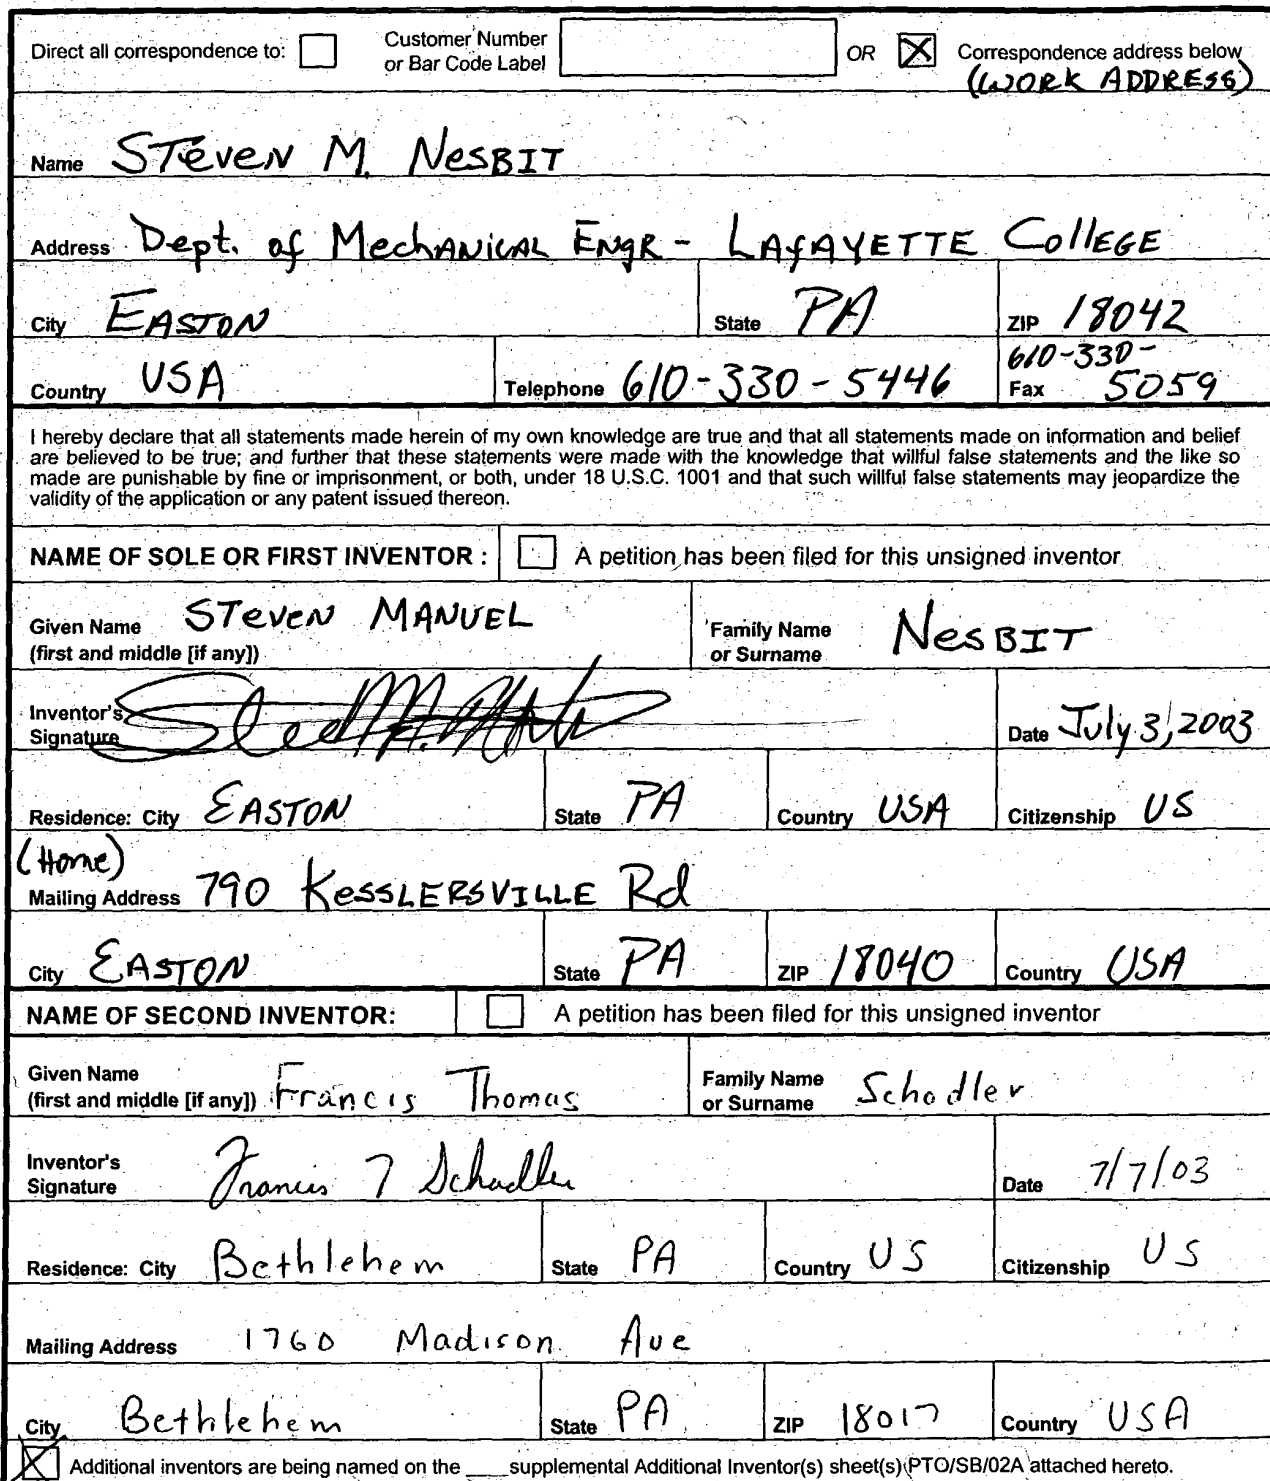 Direct all correspondence to: Customer Number or Bar Code Label OR Correspondence address below
(WORK ADDRESS)
Name STEVEN M. NESBIT
Address Dept. of MECHANICAL ENGR - LAFAYETTE COLLEGE
City EASTON State PA ZIP 18042
Country USA Telephone 610-330-5446 Fax 610-330-5059
I hereby declare that all statements made herein of my own knowledge are true and that all statements made on information and belief
are believed to be true; and further that these statements were made with the knowledge that willful false statements and the like so
made are punishable by fine or imprisonment, or both, under 18 U.S.C. 1001 and that such willful false statements may jeopardize the
validity of the application or any patent issued thereon.
NAME OF SOLE OR FIRST INVENTOR : A petition has been filed for this unsigned inventor
Given Name (first and middle [if any]) STEVEN MANUEL Family Name or Surname NESBIT
Inventor's Signature Date July 3, 2003
Residence: City EASTON State PA Country USA Citizenship US
(Home)
Mailing Address 790 KESSLERSVILLE Rd
City EASTON State PA ZIP 18040 Country USA
NAME OF SECOND INVENTOR: A petition has been filed for this unsigned inventor
Given Name (first and middle [if any]) Francis Thomas Family Name or Surname Schadler
Inventor's Signature Francis T Schadler Date 7/7/03
Residence: City Bethlehem State PA Country US Citizenship US
Mailing Address 1760 Madison Ave
City Bethlehem State PA ZIP 18017 Country USA
Additional inventors are being named on the ___supplemental Additional Inventor(s) sheet(s) PTO/SB/02A attached hereto.